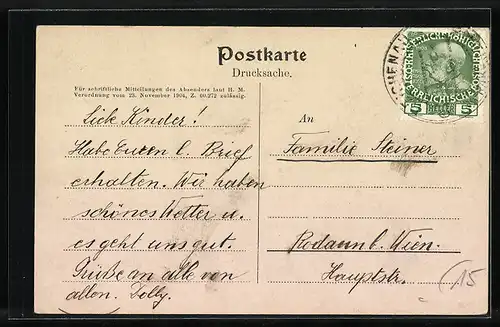 Postkarte
Drucksache.
Für schriftliche Mitteilungen des Absenders laut H. M.
Verordnung vom 23. November 1904, Z. 60.272 zulässig.
Liebe Kinder!
Habe Euren l. Brief
erhalten. Wir haben
schönes Wetter u.
es geht uns gut.
Grüße an alle von
allen. Dolly.
An
Familie Steiner
Rodaun b. Wien.
Hauptstr.
5 5
15